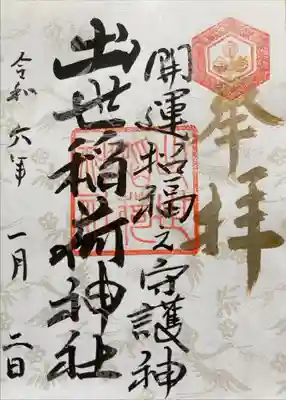 奉拝
開運招福之守護神
出世稲荷神社
令和六年一月二日